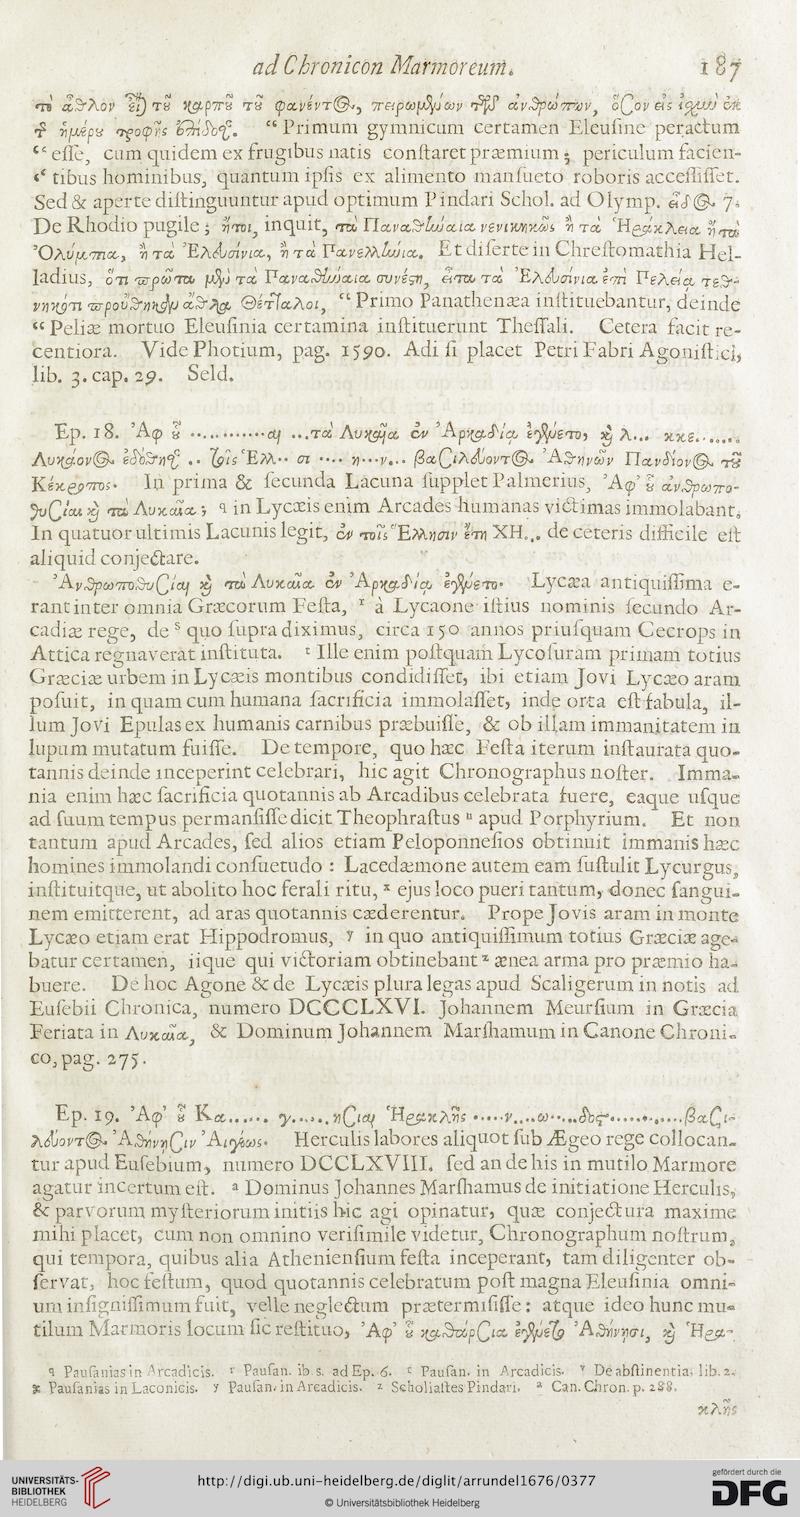 ad Chronicon Marmoreum. 187
ἡμέρου τροφῆς “ Primum gymnicum certamen Eleusine peractum
“ esse, cum quidem ex frugibus natis constaret præmium ; periculum facien-
“ tibus hominibus, quantum ipsis ex alimento mansueto roboris accessisset.
Sed & aperte distinguuntur apud optimum Pindari Schol. ad Olymp. 7.
De Rhodio pugile ; ἤτοι, inquit, τὰ Παναθήναια νενικηκὼς ἢ τὰ Ἡράκλεια ἢ τὰ
Ὀλύμπια, ἢ τὰ Ἐλευσίνια, ἢ τὰ Πανελλήνια. Et diserte in Chrestomathia Hel-
ladius, ὅτι πρῶτα μὲν τὰ Παναθήναια συνέστη, εἶτα τὰ Ἐλευσίνια ἐπὶ Πελείᾳ τεθ-
νηκότι Θέτταλοι, “ Primo Panathenæa instituebantur, deinde
“ Peliæ mortuo Eleusinia certamina instituerunt Thessali. Cetera facit re-
centiora. Vide Photium, pag. 1590. Adi si placet Petri Fabri Agonistici,
lib. 3. cap. 29. Seld.
Ep. 18. Ἀφ’ οὗ ............αι ...τὰ Λυκαῖα ἐν Ἀρκαδίᾳ ἐγένετο, καὶ λ... κκε.......
Λυκάονος ἐδόθη .. τοῖς Ἑλλ.. σι .... η...ν... βασιλεύοντος Ἀθηνῶν Πανδίονος τοῦ
Κέκροπος. In prima & secunda Lacuna supplet Palmerius, Ἀφ’ οὗ ἀνθρωπο-
θυσίαι καὶ τὰ Λυκαῖα ; q in Lycæis enim Arcades humanas victimas immolabant.
In quatuor ultimis Lacunis legit, ἐν τοῖς Ἕλλησιν ἔτη ΧΗ... de ceteris difficile est
aliquid conjectare.
Ἀνθρωποθυσίαι καὶ τὰ Λυκαῖα ἐν Ἀρκαδίᾳ ἐγένετο. Lycæa antiquissima e-
rant inter omnia Græcorum Festa, r à Lycaone istius nominis secundo Ar-
cadiæ rege, de s quo supra diximus, circa 150 annos priusquam Cecrops in
Attica regnaverat instituta. t Ille enim postquam Lycosuram primam totius
Græciæ urbem in Lycæis montibus condidisset, ibi etiam Jovi Lycæo aram
posuit, in quam cum humana sacrificia immolasset, inde orta est fabula, il-
lum Jovi Epulas ex humanis carnibus præbuisse, & ob illam immanitatem in
lupum mutatum fuisse. De tempore, quo hæc Festa iterum instaurata quo-
tannis deinde inceperint celebrari, hic agit Chronographus noster. Imma-
nia enim hæc sacrificia quotannis ab Arcadibus celebrata fuere, eaque usque
ad suum tempus permansisse dicit Theophrastus u apud Porphyrium. Et non
tantum apud Arcades, sed alios etiam Peloponnesios obtinuit immanis hæc
homines immolandi consuetudo : Lacedæmone autem eam sustulit Lycurgus,
instituitque, ut abolito hoc ferali ritu, x ejus loco pueri tantum, donec sangui-
nem emitterent, ad aras quotannis cæderentur. Prope Jovis aram in monte
Lycæo etiam erat Hippodromus, y in quo antiquissimum totius Græciæ age-
batur certamen, iique qui victoriam obtinebant z ænea arma pro præmio ha-
buere. De hoc Agone & de Lycæis plura legas apud Scaligerum in notis ad
Eusebii Chronica, numero DCCCLXVI. Johannem Meursium in Græcia
Feriata in Λυκαῖα, & Dominum Johannem Marshamum in Canone Chroni-
co, pag. 275.
Ep. 19. Ἀφ’ οὗ Κα...... γ......ησίαι Ἡρακλῆς .....ν....ω.....δος..........βασι-
λεύοντος Ἀθήνησιν Αἰγέως. Herculis labores aliquot sub Ægeo rege collocan-
tur apud Eusebium, numero DCCLXVIII. sed an de his in mutilo Marmore
agatur incertum est. a Dominus Johannes Marshamus de initiatione Herculis,
& parvorum mysteriorum initiis hic agi opinatur, quæ conjectura maxime
mihi placet, cum non omnino verisimile videtur, Chronographum nostrum,
qui tempora, quibus alia Atheniensium festa inceperant, tam diligenter ob-
servat, hoc festum, quod quotannis celebratum post magna Eleusinia omni-
um insignissimum fuit, velle neglectum prætermisisse : atque ideo hunc mu-
tilum Marmoris locum sic restituo, Ἀφ’ οὗ καθάρσια ἐγένετο Ἀθήνησι, καὶ Ἡρα-
q Pausanias in Arcadicis. r Pausan. ib. s ad Ep. 6. t Pausan. in Arcadicis. v De abstinentia, lib. 2.
x Pausanias in Laconicis. y Pausan. in Arcadicis. z Scholiastes Pindari. a Can. Chron. p. 288.
κλῆς
UNIVERSITÄTS-
BIBLIOTHEK
HEIDELBERG
http://digi.ub.uni-heidelberg.de/diglit/arrundel1676/0377
© Universitätsbibliothek Heidelberg
gefördert durch die
DFG